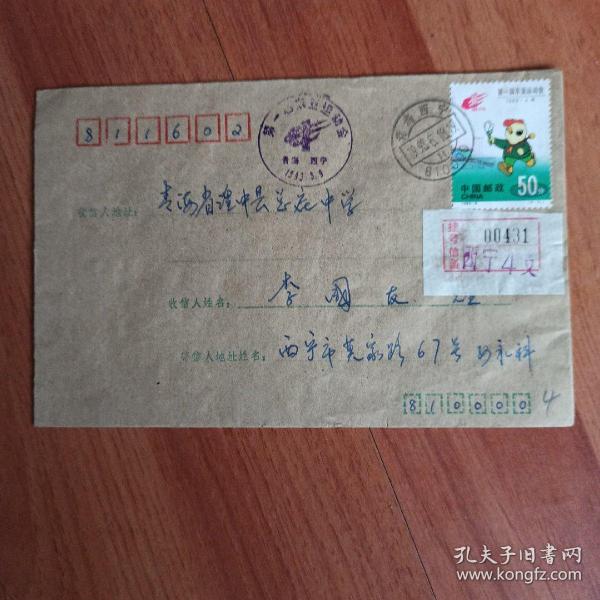 811602
第一届东亚运动会
青海 西宁
1993.5.9
青海西宁
第一届东亚运动会
50分
中国邮政
CHINA
收信人地址:
青海省湟中县总寨中学
挂号信函
00431
西宁4支
收信人姓名:
李国友
寄信人地址姓名:
西宁市莫家路67号
810000
4
孔夫子旧书网
www.kongfz.com